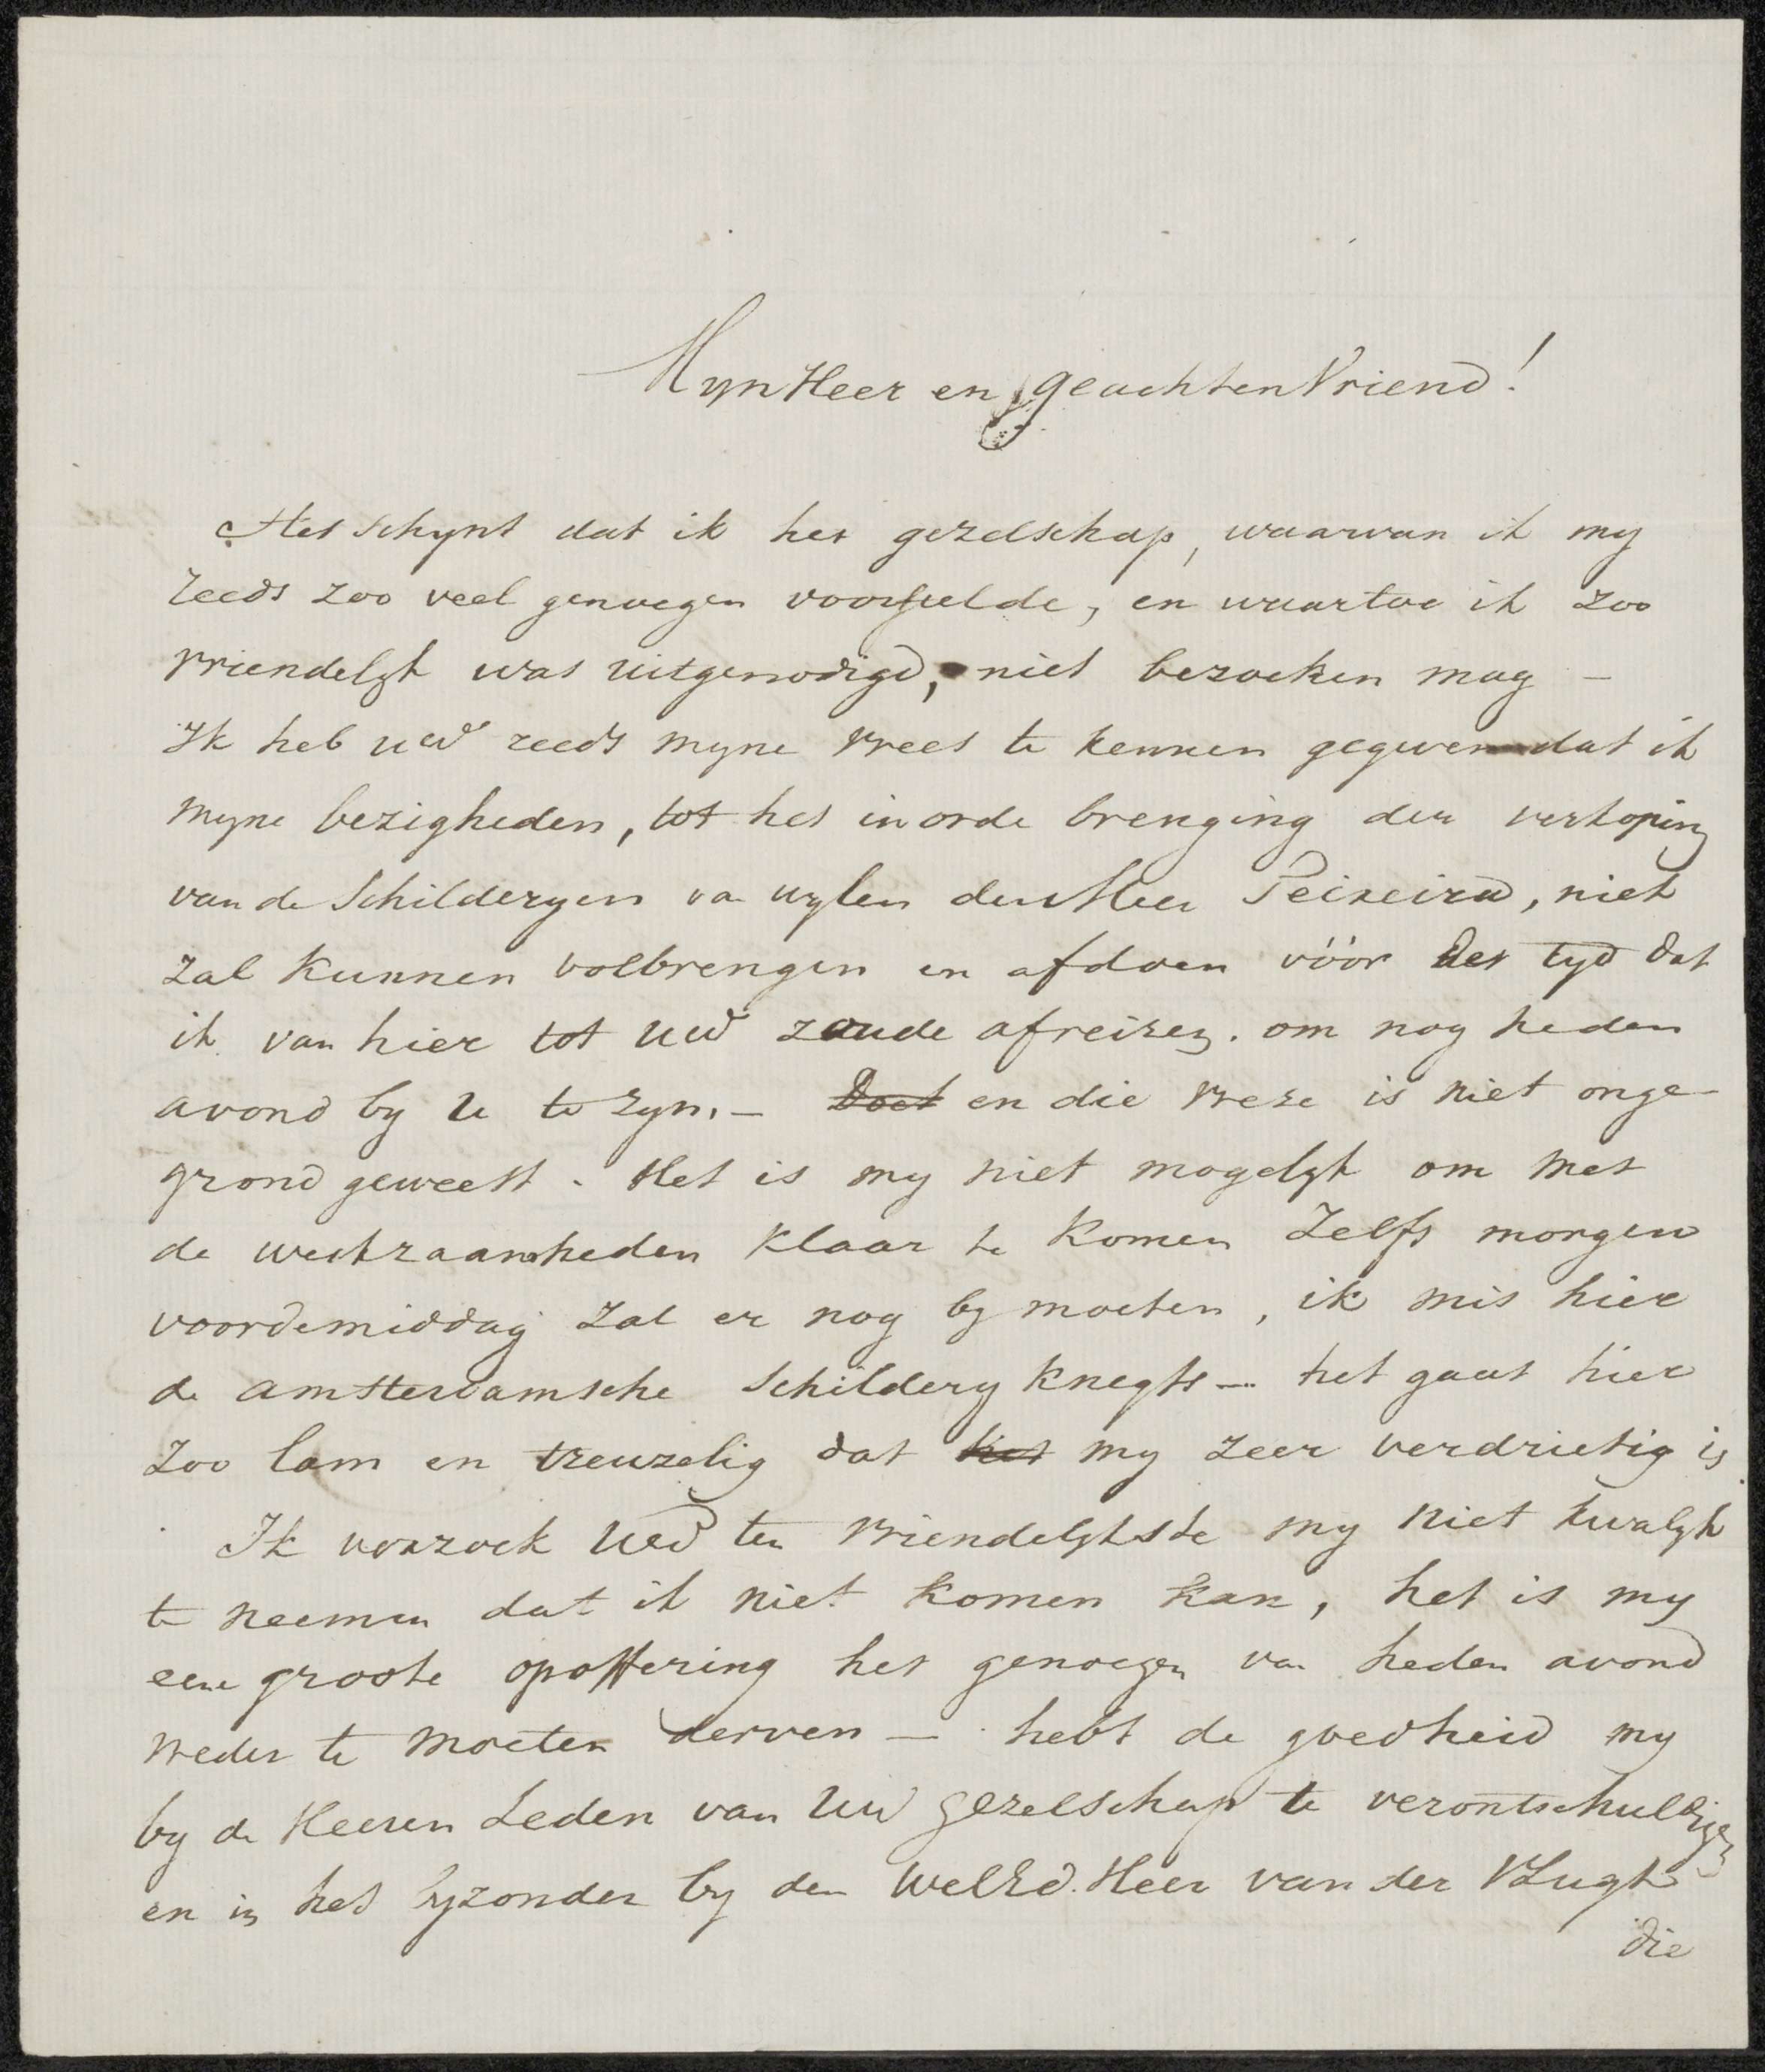 Myn Heer en geachten Vriend!
Het schynt dat ik het gezelschap, waarvan ik my
reeds zoo veel genoegen voorstelde, en waartoe ik zoo
vriendelyk was uitgenodigd, niet bezoeken mag –
Ik heb uwd reeds myne vrees te kennen gegeven dat ik
myne bezigheden, tot het in orde brenging der verkoping
van de Schilderyen va wylen den Heer Teixeira, niet
zal kunnen volbrengen en afdoen vóór der tyd dat
ik van hier tot uwd zoude afreizen. om nog heden
avond by u te zyn. – Doet en die vreze is niet onge
grond geweest. Het is my niet mogelyk om met
de werkzaamheden klaar te komen zelfs morgen
voordemiddag zal er nog by moeten, ik mis hier
de amsterdamsche schildery knegts – het gaat hier
zoo lam en treuzelig dat het my zeer verdrietig is
Ik verzoek Uwd ten vriendelykste my niet kwalyk
te neemen dat ik niet komen kan, het is my
eene groote opoffering het genoegen van heden avond
weder te moeten derven – hebt de goedheid my
by de Heeren Leden van Uw gezelschap te verontschuldigen
en in het byzonder by den WelEd. Heer van der Vlugt
die